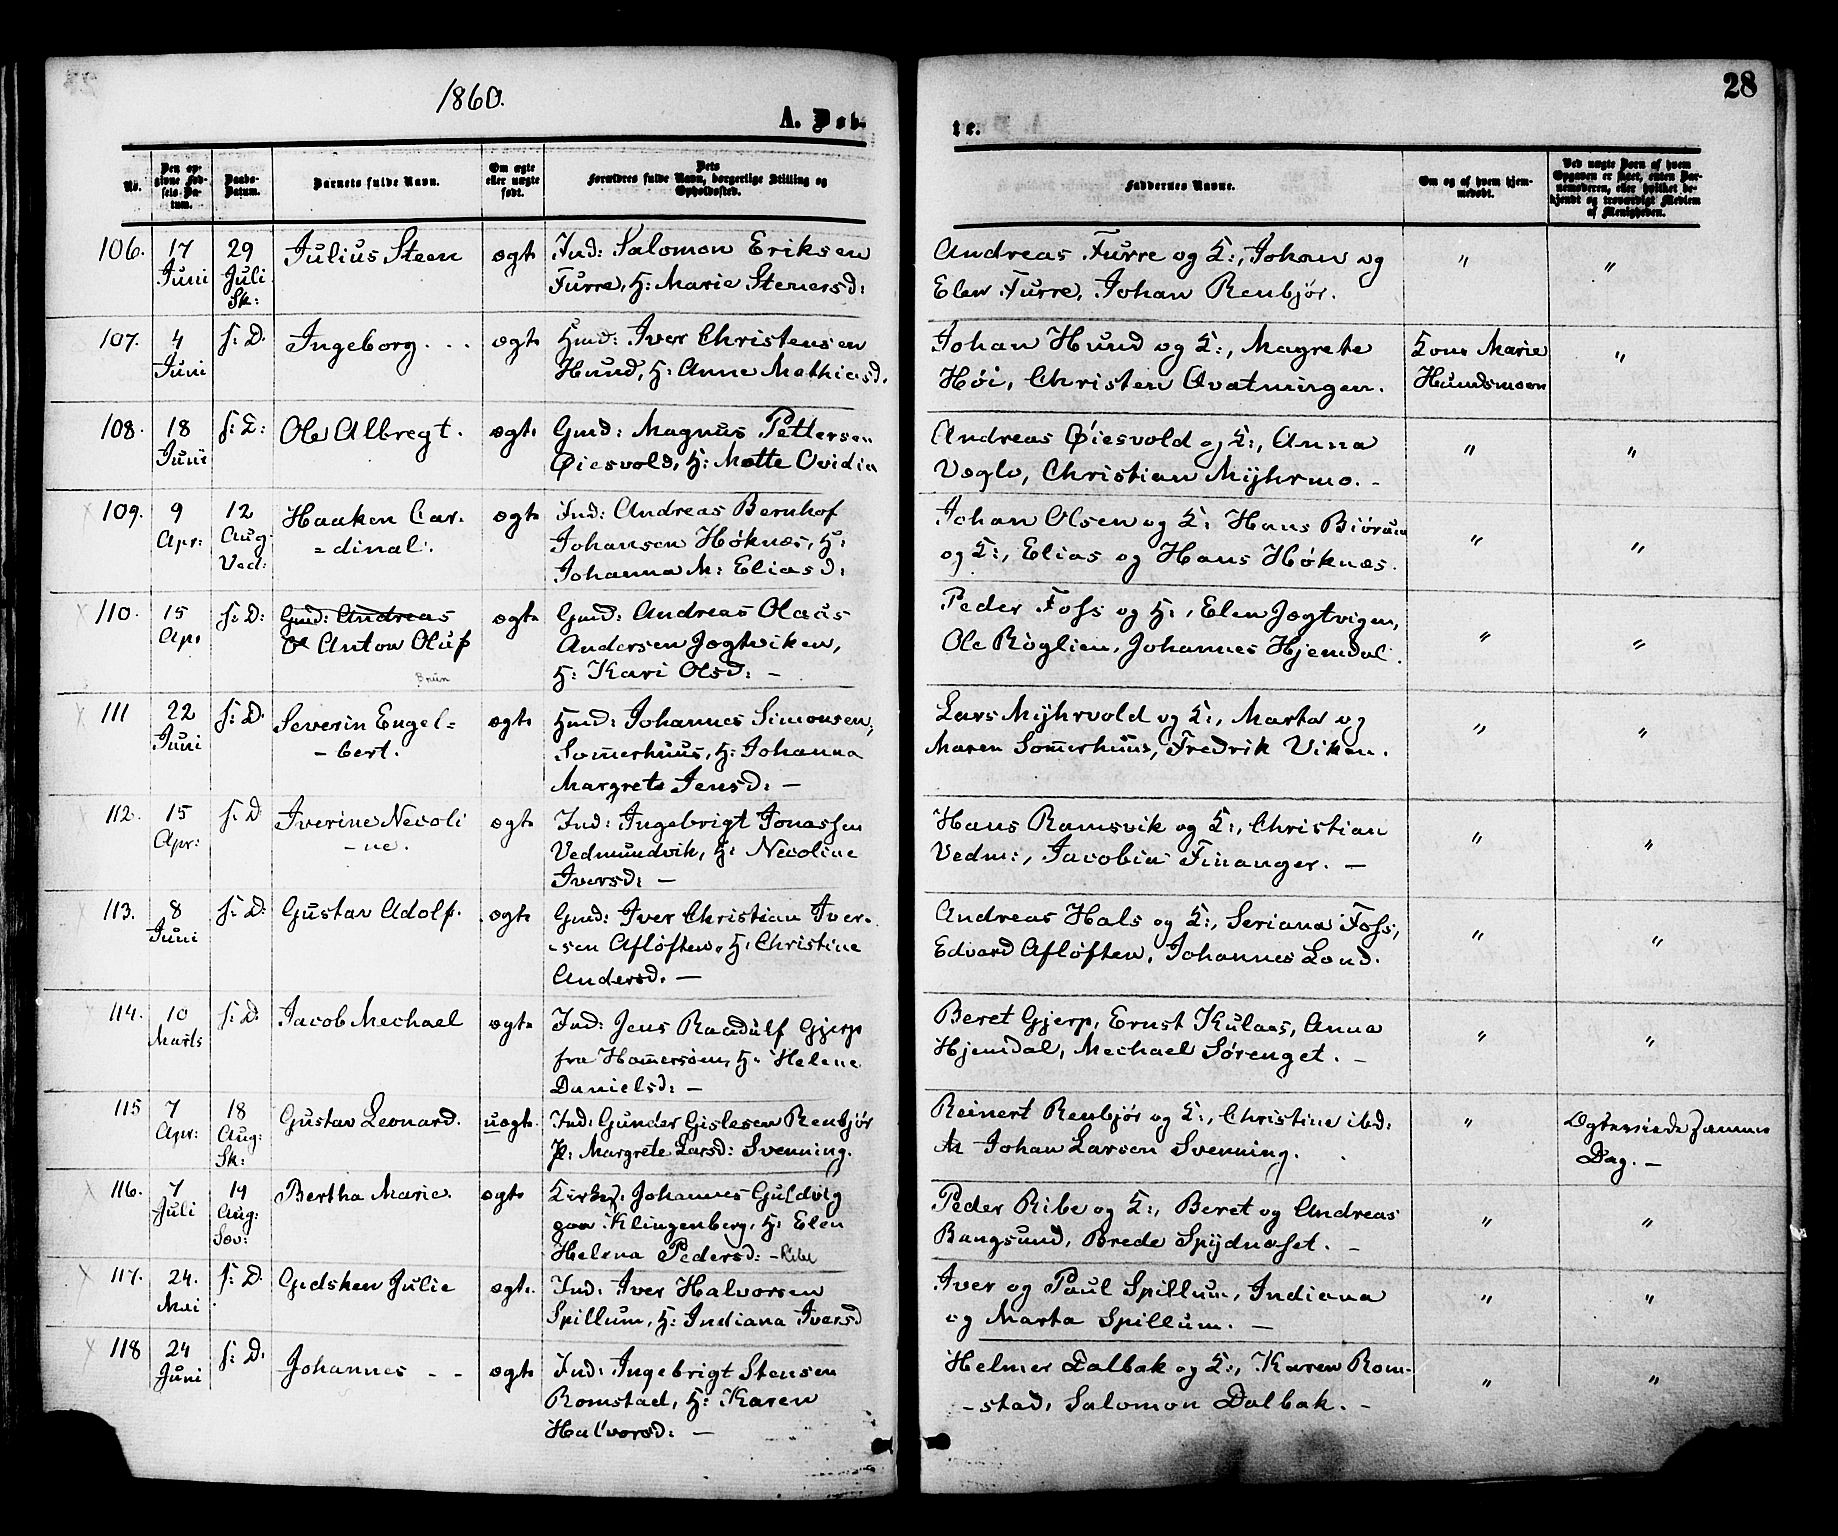 1860.
28
A. Døb-
te.
No.
Den op-
givne Fød-
sels-Da-
tum.
Daabs-
Datum.
Barnets fulde Navn.
Om ægte
eller uægte
født.
Dets
Forældres fulde Navn, borgerlige Stilling og
Opholdssted.
Faddernes Navne.
Om og af hvem hjem-
medøbt.
Ved uægte Børn af hvem
Opgaven er skeet, enten Bar-
nemoderen, eller hvilket be-
kjendt og troværdigt Medlem
af Menigheden.
106. 17 Juni 29 Juli Sk: Julius Steen ægte
Ind: Salomon Eriksen
Furre, H: Marie Stenersd:
Andreas Furre og K:, Johan og
Elen Furre, Johan Renbjør. " "
107. 4 Juni s: D. Ingeborg. - - ægte
Hmd: Iver Christensen
Hund, H: Anne Mathiasd.
Johan Hund og K:, Magrete
Høi, Christen Qvatningen.
Kone Marie
Hundsmoen "
108. 18 Juni s: D: Ole Albregt. ægte
Gmd: Magnus Pettersen
Øiesvold, H: Mette Ovidia
Andreas Øiesvold og K:, Anna
Vegle, Christian Myhrmo. - " "
109. 9 Apr: 12 Aug. Ved: Haaken Car-
=dinal. ægte
Ind: Andreas Bernhof
Johansen Høknæs, H:
Johanna M: Eliasd:
Johan Olsen og K: Hans Biørum
og K:, Elias og Hans Høknæs. " "
110. 15 Apr s: D: Gmd: Andreas
Anton Oluf
Brün ægte
Gmd: Andreas Olaus
Andersen Jægtviken,
H: Kari Olsd: -
Peder Foss og H:, Elen Jægtvigen,
Ole Røglien, Johannes Hjemdal. " "
111 22 Juni s: D. Severin Engel=
-bert. ægte
Hmd: Johannes Simonsen,
Sommerhuus, H: Johanna
Margrete Jensd: -
Lars Myhrvold og K:, Marta og
Maren Sommerhuus, Fredrik Viken. " "
112. 15 Apr: s: D Iverine Necoli
-ne. ægte
Ind: Ingebrigt Jonassen
Vedmundvik, H: Necoline
Iversd: -
Hans Ramsvik og K:, Christian
Vedm:, Jacobia Finanger. - " "
113. 8 Juni s: D: Gustav Adolf. ægte
Gmd: Iver Christian Iver-
-sen Afløften, H: Christine
Andersd. -
Andreas Hals og K:, Seriana Foss,
Edvard Afløften, Johannes Lond. " "
114. 10 Marts s: D: Jacob Mechael ægte
Ind: Jens Raadulf Gjerp
fra Homersøen, H: Helene
Danielsd: -
Beret Gjerp, Ernst Kulaas, Anna
Hjemdal, Mechael Sørenget. - " "
115 7 Apr: 18 Aug: Sk: Gustav Leonard. uægte
Ind: Gunder Gislesen Renbjør
P: Margrete Larsd: Svenning.
Reinert Renbjør og K:, Christine ibd:
Johan Larsen Svenning. "
Dag. -
116. 7 Juli 19 Aug: Sæv: Bertha Marie. ægte
Kirkes: Johannes Guldvig
paa Klingenberg, H: Elen
Helena Pedersd: - Ribe
Peder Ribe og K:, Beret og Andreas
Bangsund, Brede Spydnæset. - " "
117. 24. Mai s: D. Gidsken Julie ægte.
Ind: Iver Halvorsen
Spillum, H: Indiana Iversd
Iver og Paul Spillum, Indiana
og Marta Spillum. - " "
118 24 Juni s: D. Johannes - - ægte
Ind: Ingebrigt Stensen
Romstad, H: Karen
Halvorsd: -
Helmer Dalbak og K:, Karen Rom-
-stad, Salomon Dalbak. - " "